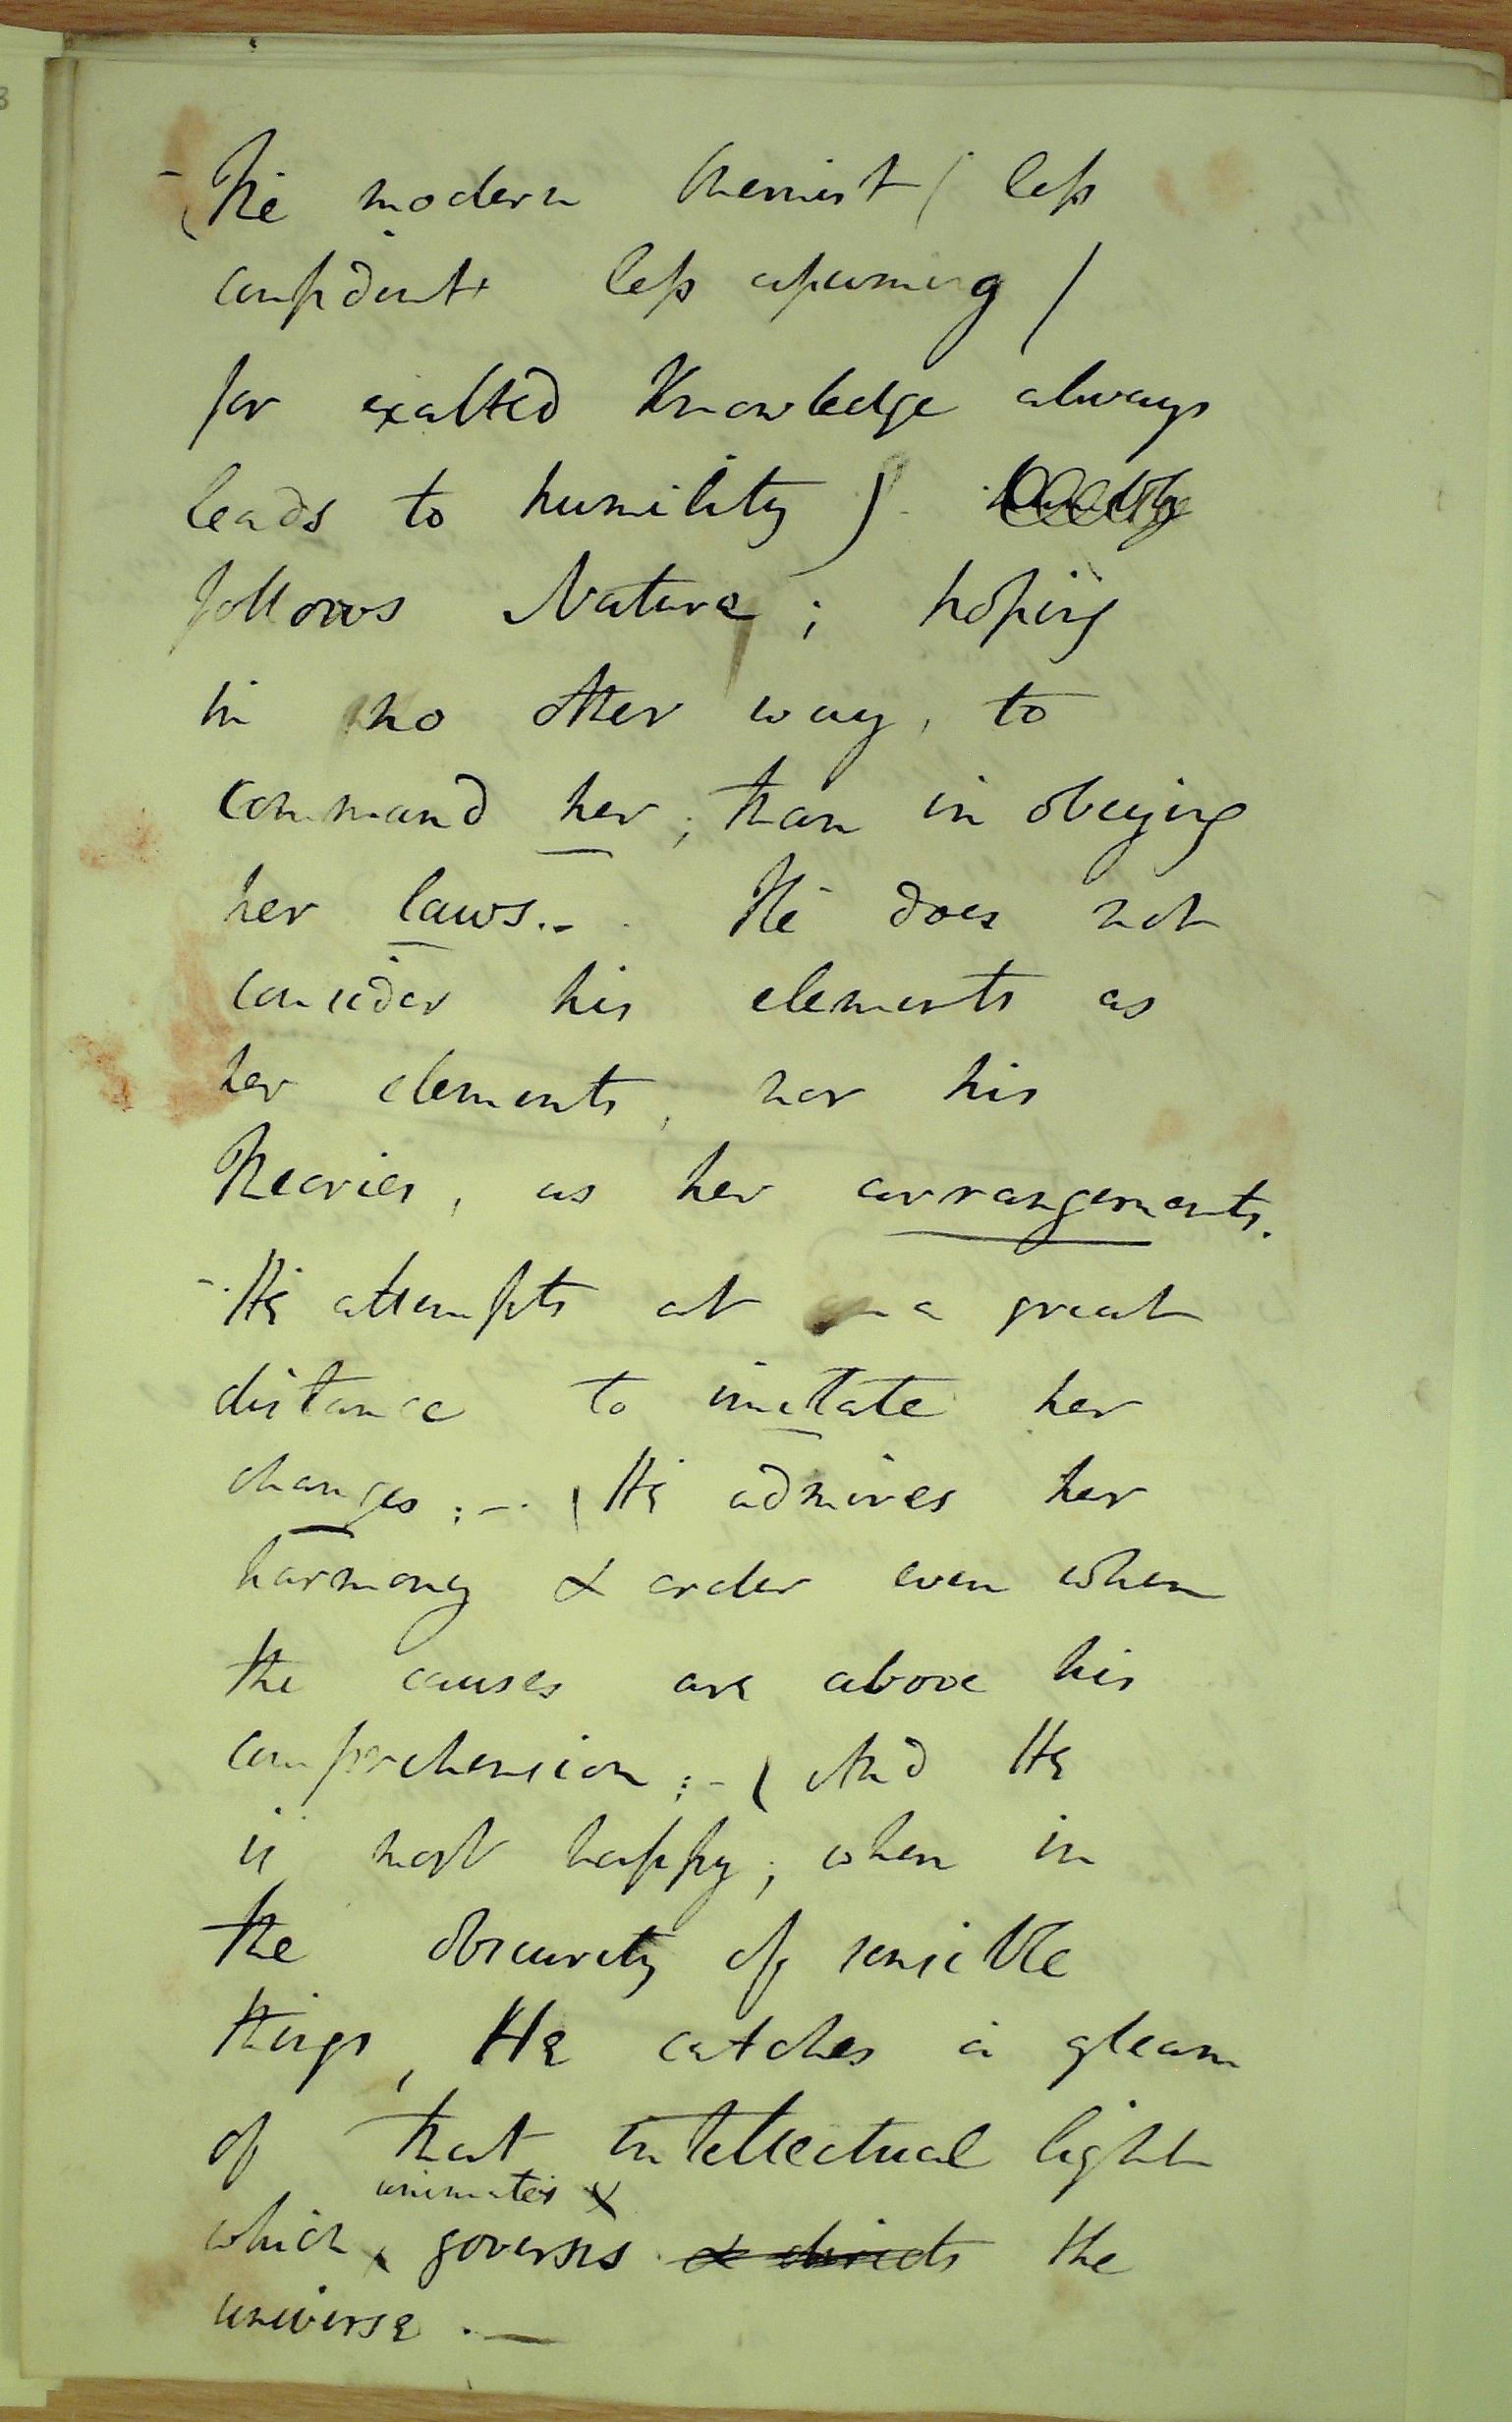 - The modern Chemist ( less
confident less assuming /
for exalted Knowledge always
leads to humility ) humbly
follows Nature; hoping
in no other way, to
command her; than in obeying
her laws.- He does not
consider his elements as
her elements, nor his
Theories, as her arrangements.
-. He attempts at a great
distance to imitate her
changes:-. (He admires her
harmony & order even when
the causes are above his
comprehension:- ( And He
is most happy; when in
the obscurity of sensible
things, He catches a gleam
of that intellectual light
animates &
which governs & directs the
universe. —